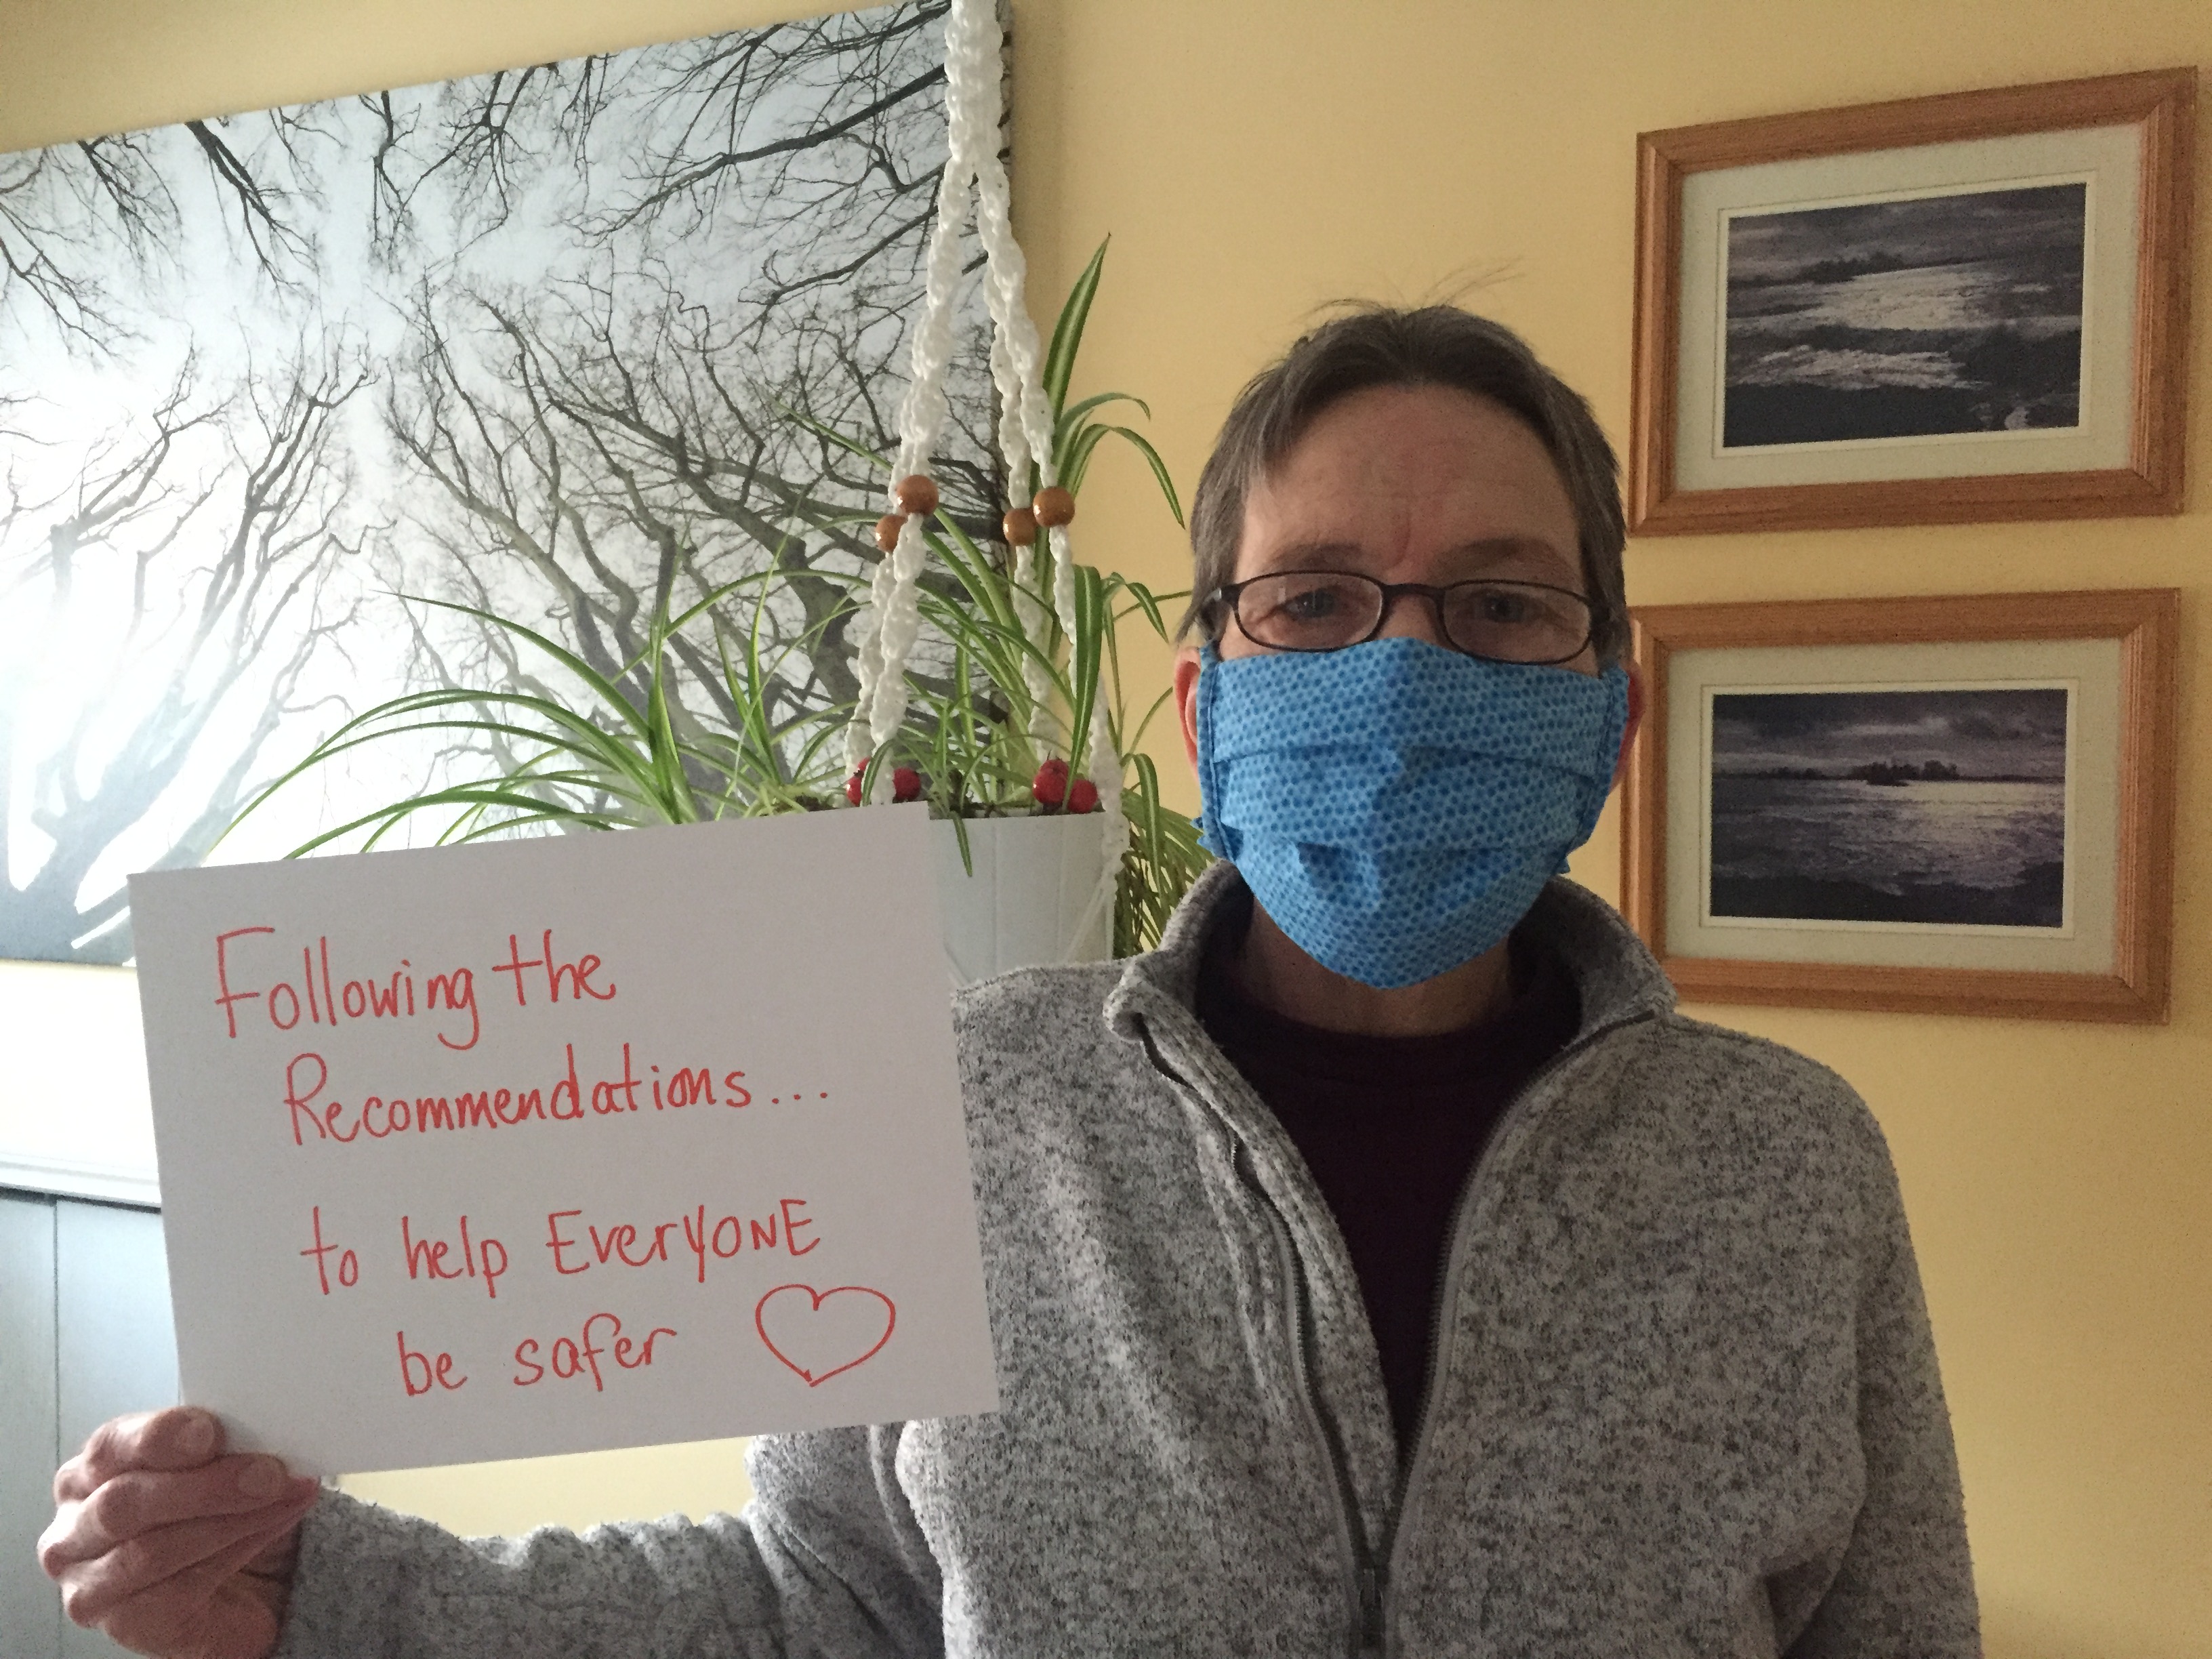 Following the
Recommendations...
to help EveryONE
be safer